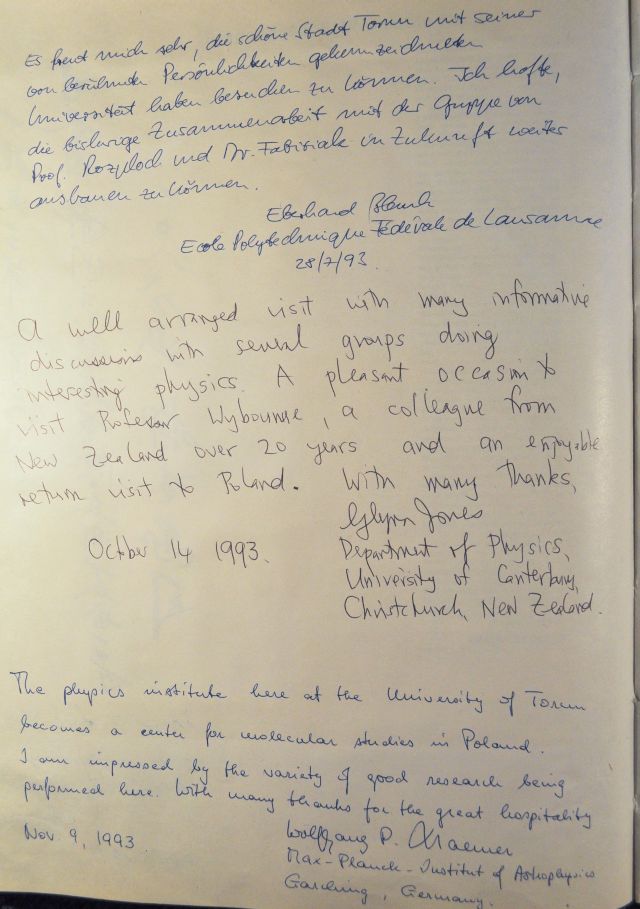 Es freut mich sehr, die schöne Stadt Torun mit seiner
von berühmten Persönlichkeiten gekennzeichneten
Universität haben besuchen zu können. Ich hoffe,
die bisherige Zusammenarbeit mit der Gruppe von
Prof. Rozploch und Dr. Fabisiak in Zukunft weiter
ausbauen zu können.
Eberhard Blank
Ecole Polytechnique Fédérale de Lausanne
28/7/93.
A well arranged visit with many informative
discussions with several groups doing
interesting physics. A pleasant occasion to
visit Professor Wybourne, a colleague from
New Zealand over 20 years and an enjoyable
return visit to Poland. With many thanks,
Glynn Jones
October 14 1993. Department of Physics,
University of Canterbury,
Christchurch, New Zealand.
The physics institute here at the University of Torun
becomes a center for molecular studies in Poland.
I am impressed by the variety of good research being
performed here. With many thanks for the great hospitality
Wolfgang P. Kraemer
Nov. 9, 1993 Max-Planck-Institut of Astrophysics
Garching, Germany.